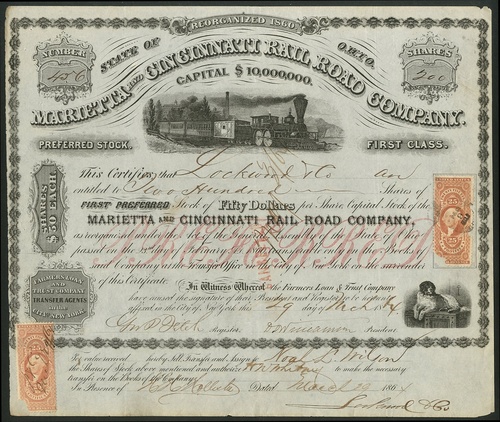 REORGANIZED 1860
STATE OF OHIO.
NUMBER
456
SHARES
200
MARIETTA AND CINCINNATI RAIL ROAD COMPANY.
CAPITAL $10,000,000.
PREFERRED STOCK.
FIRST CLASS.
This Certifies that Lockwood & Co are
entitled to Two Hundred Shares of
FIRST PREFERRED Stock of Fifty Dollars per Share Capital Stock of the
MARIETTA AND CINCINNATI RAIL ROAD COMPANY,
as reorganized under the Act of the General Assembly of the State of Ohio
passed on the
and Company at the Transfer Office in the City of New York on the surrender
of this Certificate.
SHARES $50 EACH
FARMERS LOAN AND TRUST COMPANY
TRANSFER AGENTS
CITY NEW YORK
In Witness Whereof the Farmers Loan & Trust Company
have caused the signature of their President and Register to be hereunto
affixed in the City of New York this 29 day of March 1864
Register.
President.
For value received hereby Sell, Transfer and Assign to Noah L. Wilson
the Shares of Stock above mentioned and authorize to make the necessary
transfer on the Books of the Company
In Presence of Dated March 29 1864
Lockwood & Co